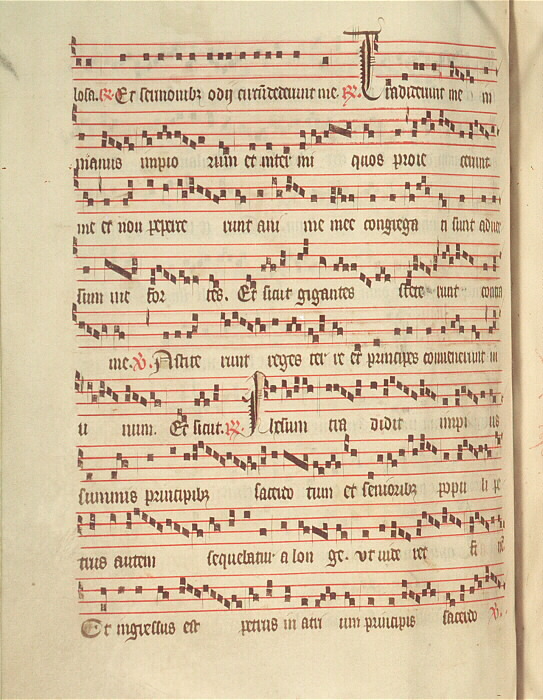 losa. ℟. Et sermonibꝫ odij circūdederunt me. ℟. Tradiderunt me in
manus impio rum et inter in i quos proie cerunt
me et non peperc erunt ani me mee congrega ti sunt aduer
sum me for tes. Et sicut gigantes stete runt contra
me. ℣. Astite runt reges ter re et principes conuenerunt in
u num. Et sicut. ℟. Ihesum tra didit impi us
summis principibꝫ sacerdo tum et senioribꝫ popu li pe
trus autem sequebatur a lon ge. vt uide ret fi
Et ingressus est petrus in atri um principis sacerdo ℣.